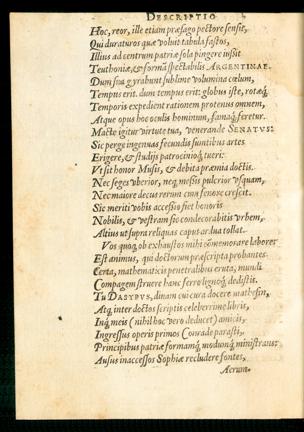 DESCRIPTIO
Hoc, reor, ille etiam præsago pectore sensit,
Qui duraturos quæ voluit tabula fastos,
Illius ad centrum patriæ sola pingere iussit
Teuthoniæ, & formã spectabilis ARGENTINAE.
Dum sua gyrabunt sublime volumina cœlum,
Tempus erit. dum tempus erit: globus iste, rotæq́;
Temporis expedient rationem protenus omnem,
Atque opus hoc oculis hominum, famaq́; feretur.
Macte igitur virtute tua, venerande SENATVS:
Sic perge ingenuas fecundis suntibus artes
Erigere, & studijs patrocinioq́; tueri:
Vt sit honor Musis, & debita præmia doctis.
Nec seges vberior, neq; messis pulcrior vsquam,
Nec maiore decus rerum cum fenore crescit.
Sic meriti vobis accessio fiet honoris
Nobilis, & vestram sic condecorabitis vrbem,
Altius ut supra reliquas caput ardua tollat.
Vos quoq; ob exhaustos mihi cõmemorare labores
Est animus, qui doctorum præscripta probantes
Certa, mathematicis penetralibus eruta, mundi
Compagem struere hanc ferro lignoq́; dedistis.
Tu DASYPVS, dinam cui cura docere mathesin,
Atq; inter doctos scriptis celeberrime libris,
Inq; meis (nihil hoc vero deducet) amicis,
Ingressus operis primos Conrade parasti,
Principibus patriæ formamq́; modumq́; ministrans:
Ausus inaccessos Sophiæ recludere fontes,
Aerum-